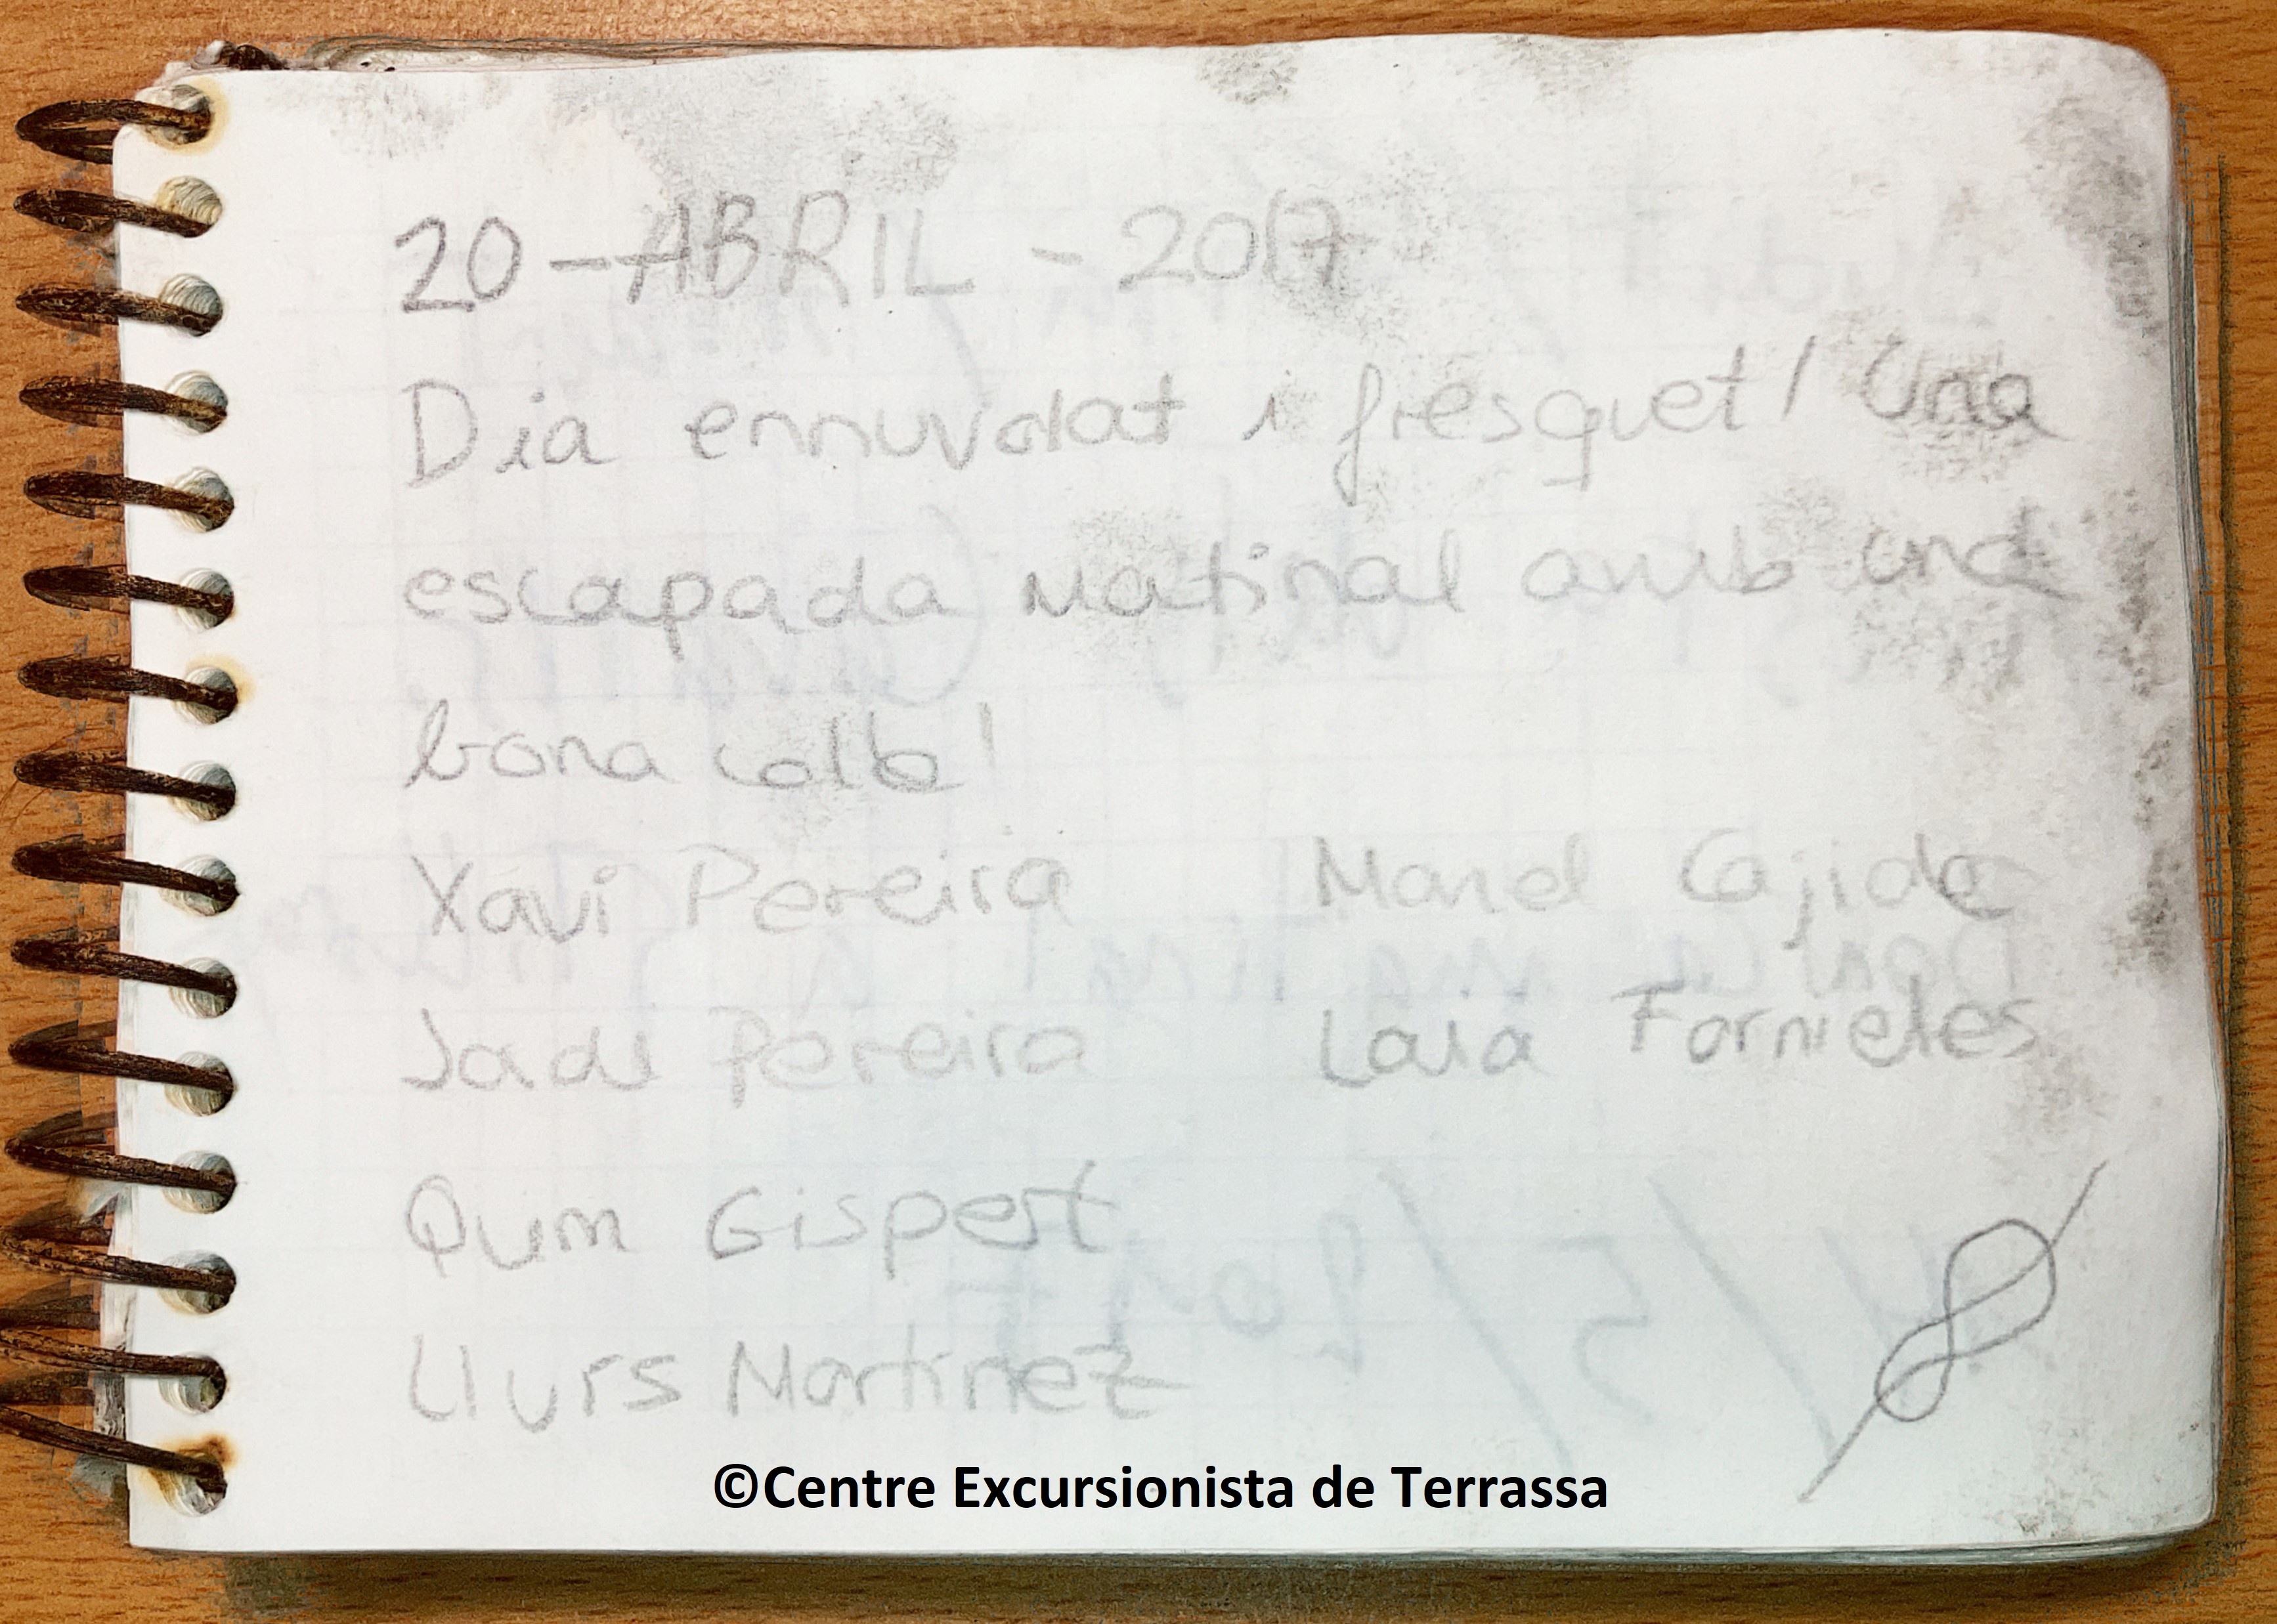 20 - ABRIL - 2017
Dia ennuvolat i fresquet! Una
escapada matinal amb una
bona colla!
Xavi Pereira Manel Cajide
Jade Pereira Laia Fornieles
Quim Gispert
Lluís Martínez
©Centre Excursionista de Terrassa